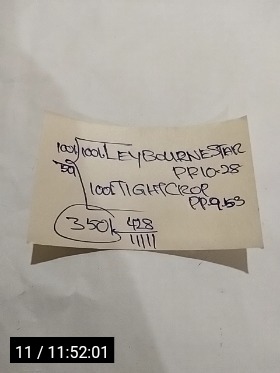 100k 100k LEYBOURNESTAR
50 PP.10-28
100k TIGHTCROP
PP.9.53
350k 428
11 / 11:52:01